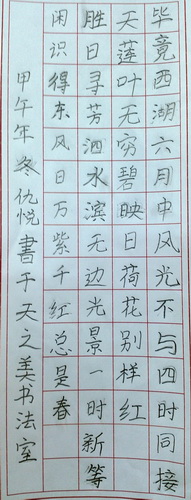 毕竟西湖六月中风光不与四时同接
天莲叶无穷碧映日荷花别样红
胜日寻芳泗水滨无边光景一时新等
闲识得东风日万紫千红总是春
甲午年冬仇悦書于天之美书法室